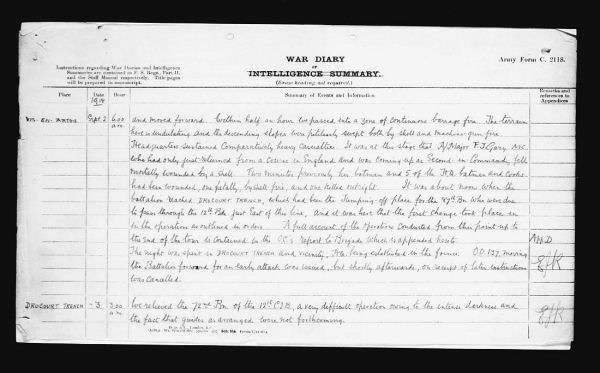 WAR DIARY
or
INTELLIGENCE SUMMARY.
(Erase heading not required.)
Army Form C. 2118.
Instructions regarding War Diaries and Intelligence
Summaries are contained in F. S. Regs., Part II.
and the Staff Manual respectively. Title pages
will be prepared in manuscript.
Place Date Hour Summary of Events and Information Remarks and
references to
Appendices
VIS-EN-ARTOIS Sept. 2 6.00 a.m. and moved forward. Within half an hour we passed into a zone of continuous barrage fire. The terrain
here is undulating and the descending slopes were pitilessly swept both by shell and machine gun fire.
Headquarters sustained comparatively heavy casualties. It was at this stage that A/Major F.J. Gary M.C.
who had only just returned from a course in England and was coming up as Second in Command, fell
mortally wounded by a shell. Two minutes previously his batman and 5 of the H.Q. batmen and cooks
had been wounded, one fatally, by shell fire, and one killed outright. It was about noon when the
battalion reached DROCOURT TRENCH, which had been the jumping-off place for the 87th Bn who were due
to pass through the 12th Bde just East of this line, and it was here that the first change took place in
in the operation as outlined in orders. A full account of the operation conducted from this point up to
the end of the tour is contained in the O.C's report to Brigade which is appended hereto. App D
The night was spent in DROCOURT TRENCH and vicinity, H.Q. being established in the former. O.O. 137, moving
the Battalion forward for an early attack was issued, but shortly afterwards, on receipt of later instructions
was cancelled.
DROCOURT TRENCH - 3. 3.00 a.m. We relieved the 72nd Bn of the 12th C.I.B, a very difficult operation owing to the intense darkness and
the fact that guides as arranged were not forthcoming.